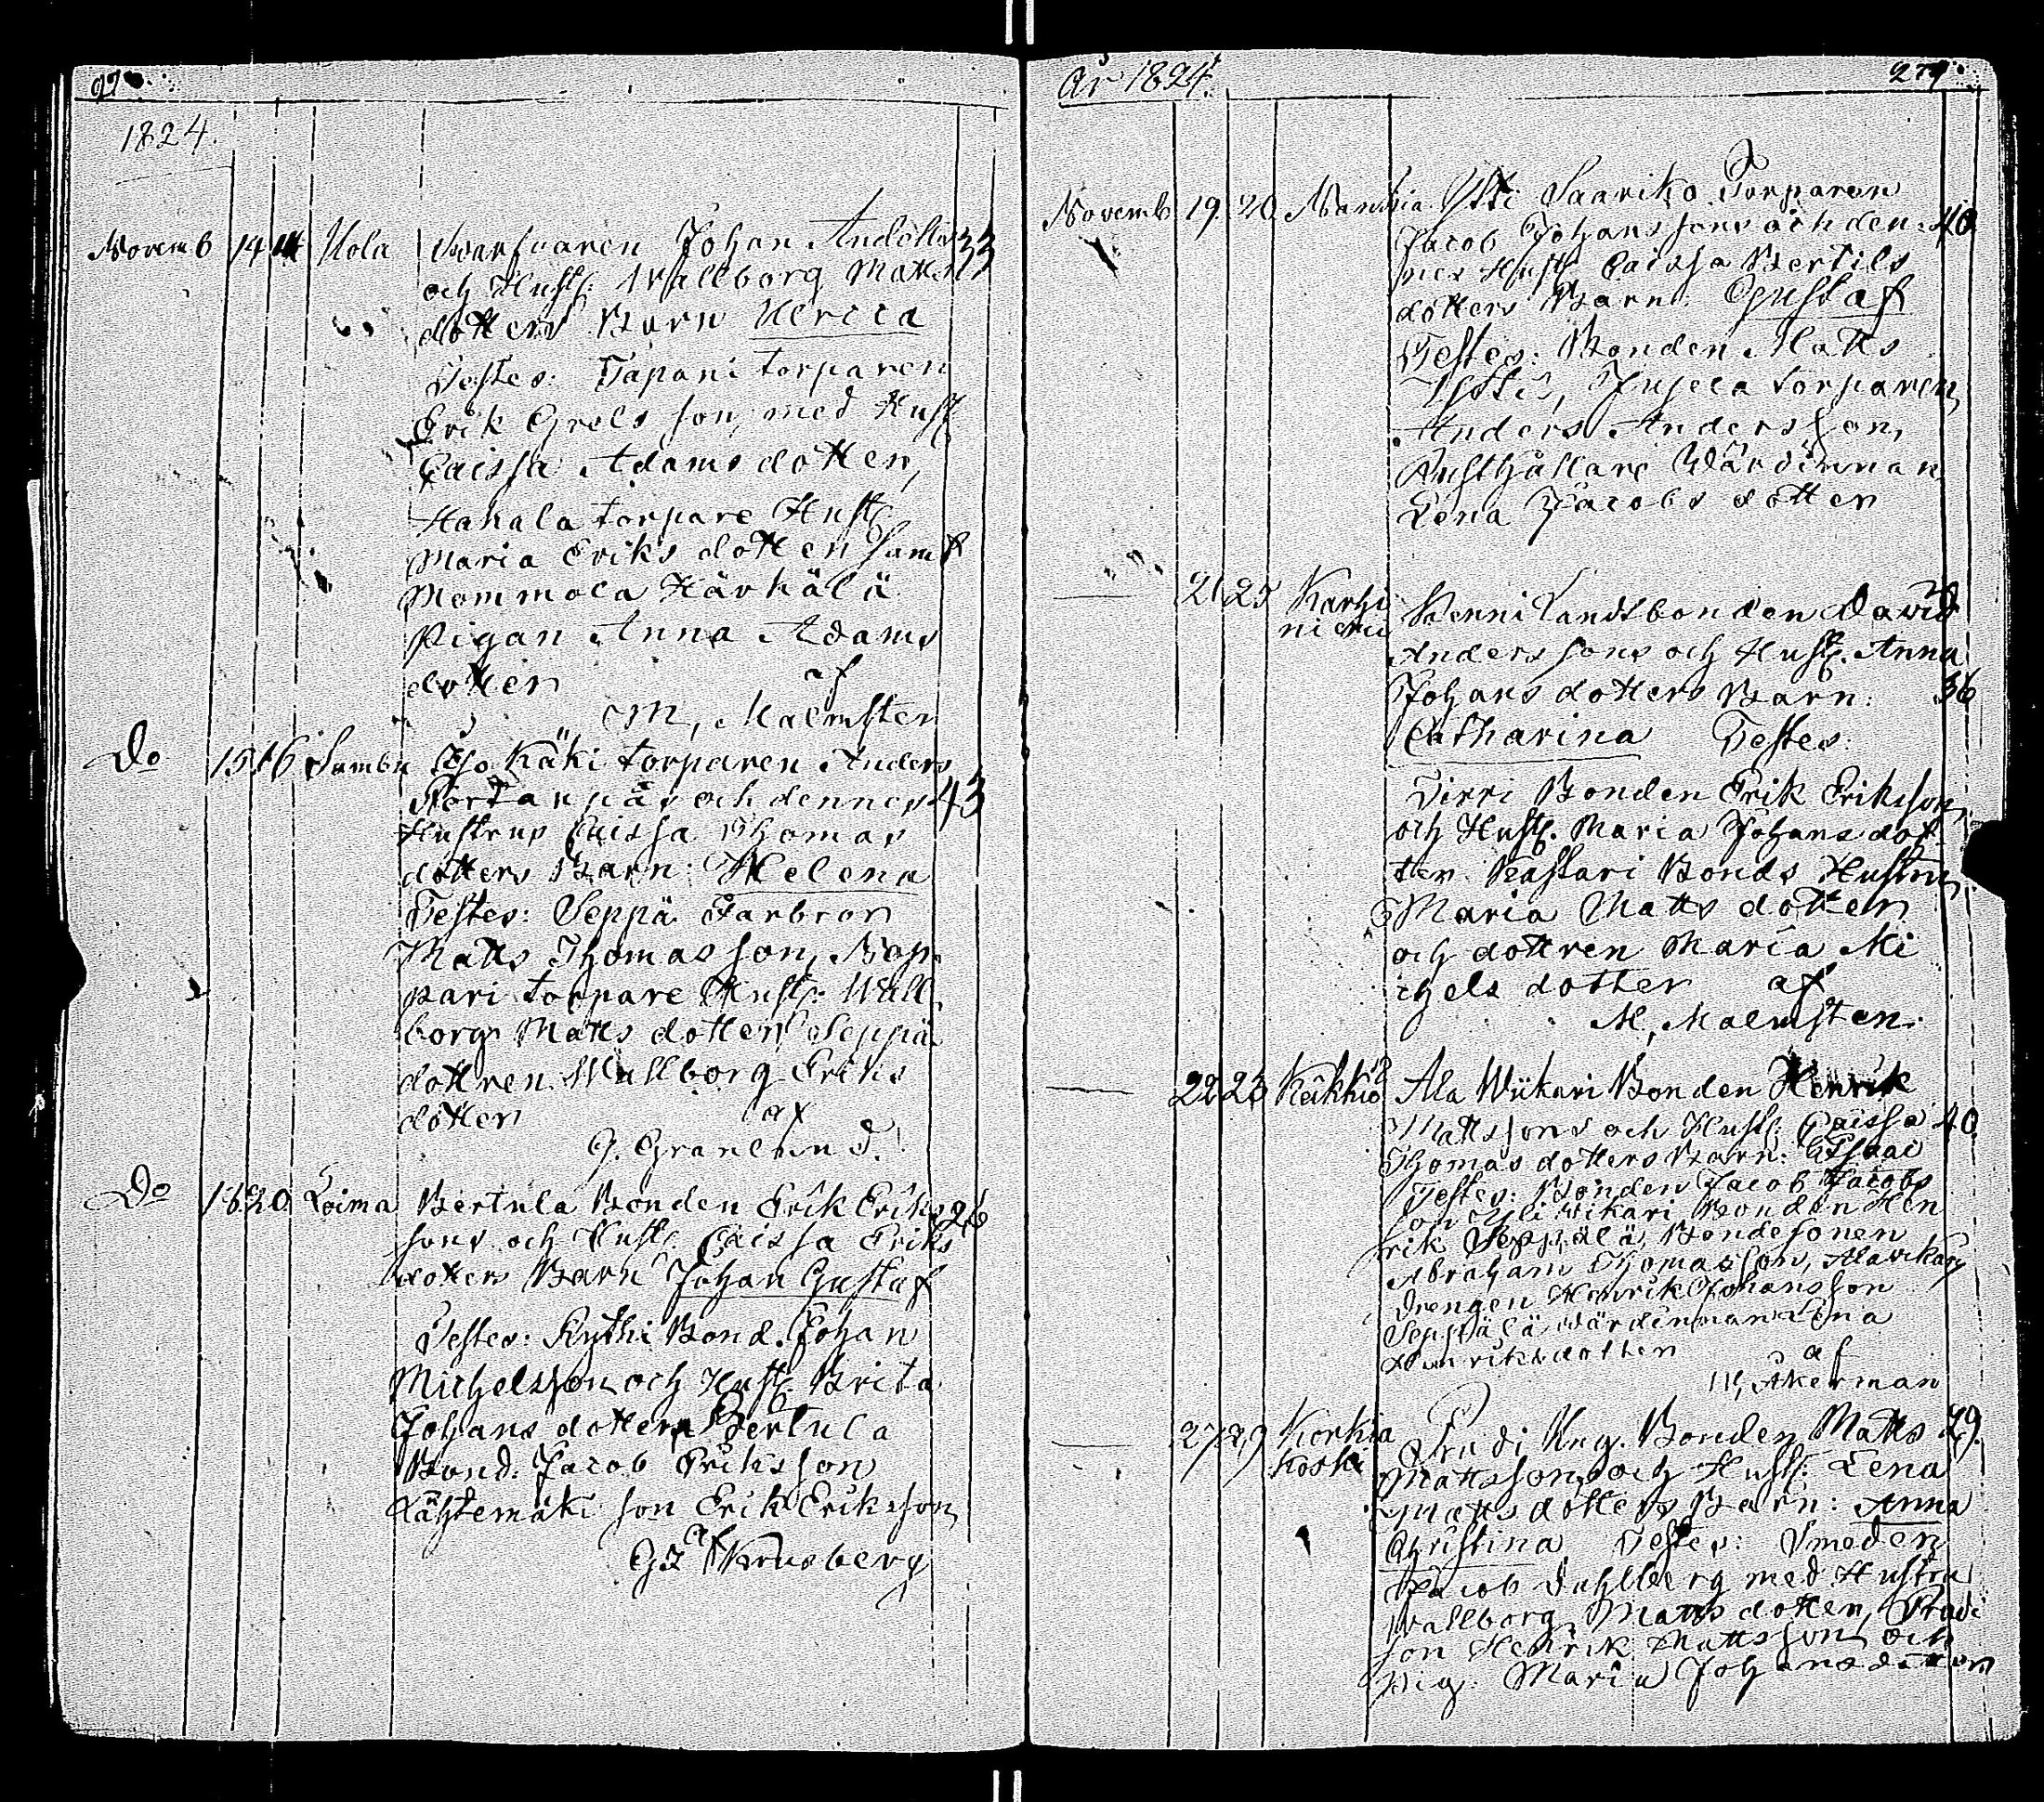 1824.
Novemb 14 14 Uola Swarfvaren Johan Andelin 33
och Hustr: Wallborg Matts
dotters Barn Ulrica
Testes: Tapani torparen
Erik Grels son, med Hust
Caissa Adams dotter,
Hakala torpare Hust
Maria Eriks dotter samt
Mommola Härkälä
Pigan Anna Adams
dotter af
M, Malmsten
Do 15 16 Sambu Iso Käki torparen Anders
och dennes 43
Hustrus Caissa Thomas
dotters Barn: Helena
Testes: Seppä Farbror
Matts Thomas son,
pari torpare Hustr: Wall
borg Matts dotter Seppä
dottren Wallborg Eriks
dotter af
G. Granlund.
Do 18 20 Loima Bertula Bonden Erik Eriks 26
sons och Hustr. Caissa Eriks
dotters Barn Johan Gustaf
Testes: Kythi Bond. Johan
Michelsson och Hustr. Brita
Johans dotter, Bertula
Bond: Jacob Eriksson
Lähtemäki son Erik Eriksson,
af Krusberg
År 1824. 271.
Novemb 19 20 Saariko Torparen
Jacob Johanssons och den 40
nes Hustr Caissa Bertils
dotters Barn: Gustaf
Testes: Bonden Matts
torparen
Anders Andersson,
Rusthållare Wärdinnan
Lena Jacobs dotter
21 25 Karhi
niemi Landtbonden David
Anders sons och Hustr. Anna
Johans dotters Barn: 36
Catharina Testes:
Tirri Bonden Erik Eriksson,
och Hustr. Maria Johans dot
ter. Kastari Bonds Hustru
Maria Matts dotter
och dottren Maria Mi
chels dotter af
M, Malmsten.
22 23 Keikkiö Ala Wikari Bonden Henrik
Mattssons och Hustr: Caissa 40
Thomas dotters Barn: Esaai
Testes: Bonden Jacob Jacobs
son Yli Wikari Bonden Hen
rik Seppälä, Bondesonen
Abraham Thomasson, Alavikari
Drengen Henrik Johansson
Seppälä wärdinnan Lena
Henriksdotter af
M, Åkerman
27 29 Korkia
koski Prudi Ung. Bonden Matts 29.
Mattssons och Hustr: Lena
Matts dotters Barn: Anna
Christina Testes: Smeden
Jacob Dahlberg med Hustru
Wallborg Matts dotter, Prudi
son Henrik Mattsson och
Pig: Maria Johansdotter